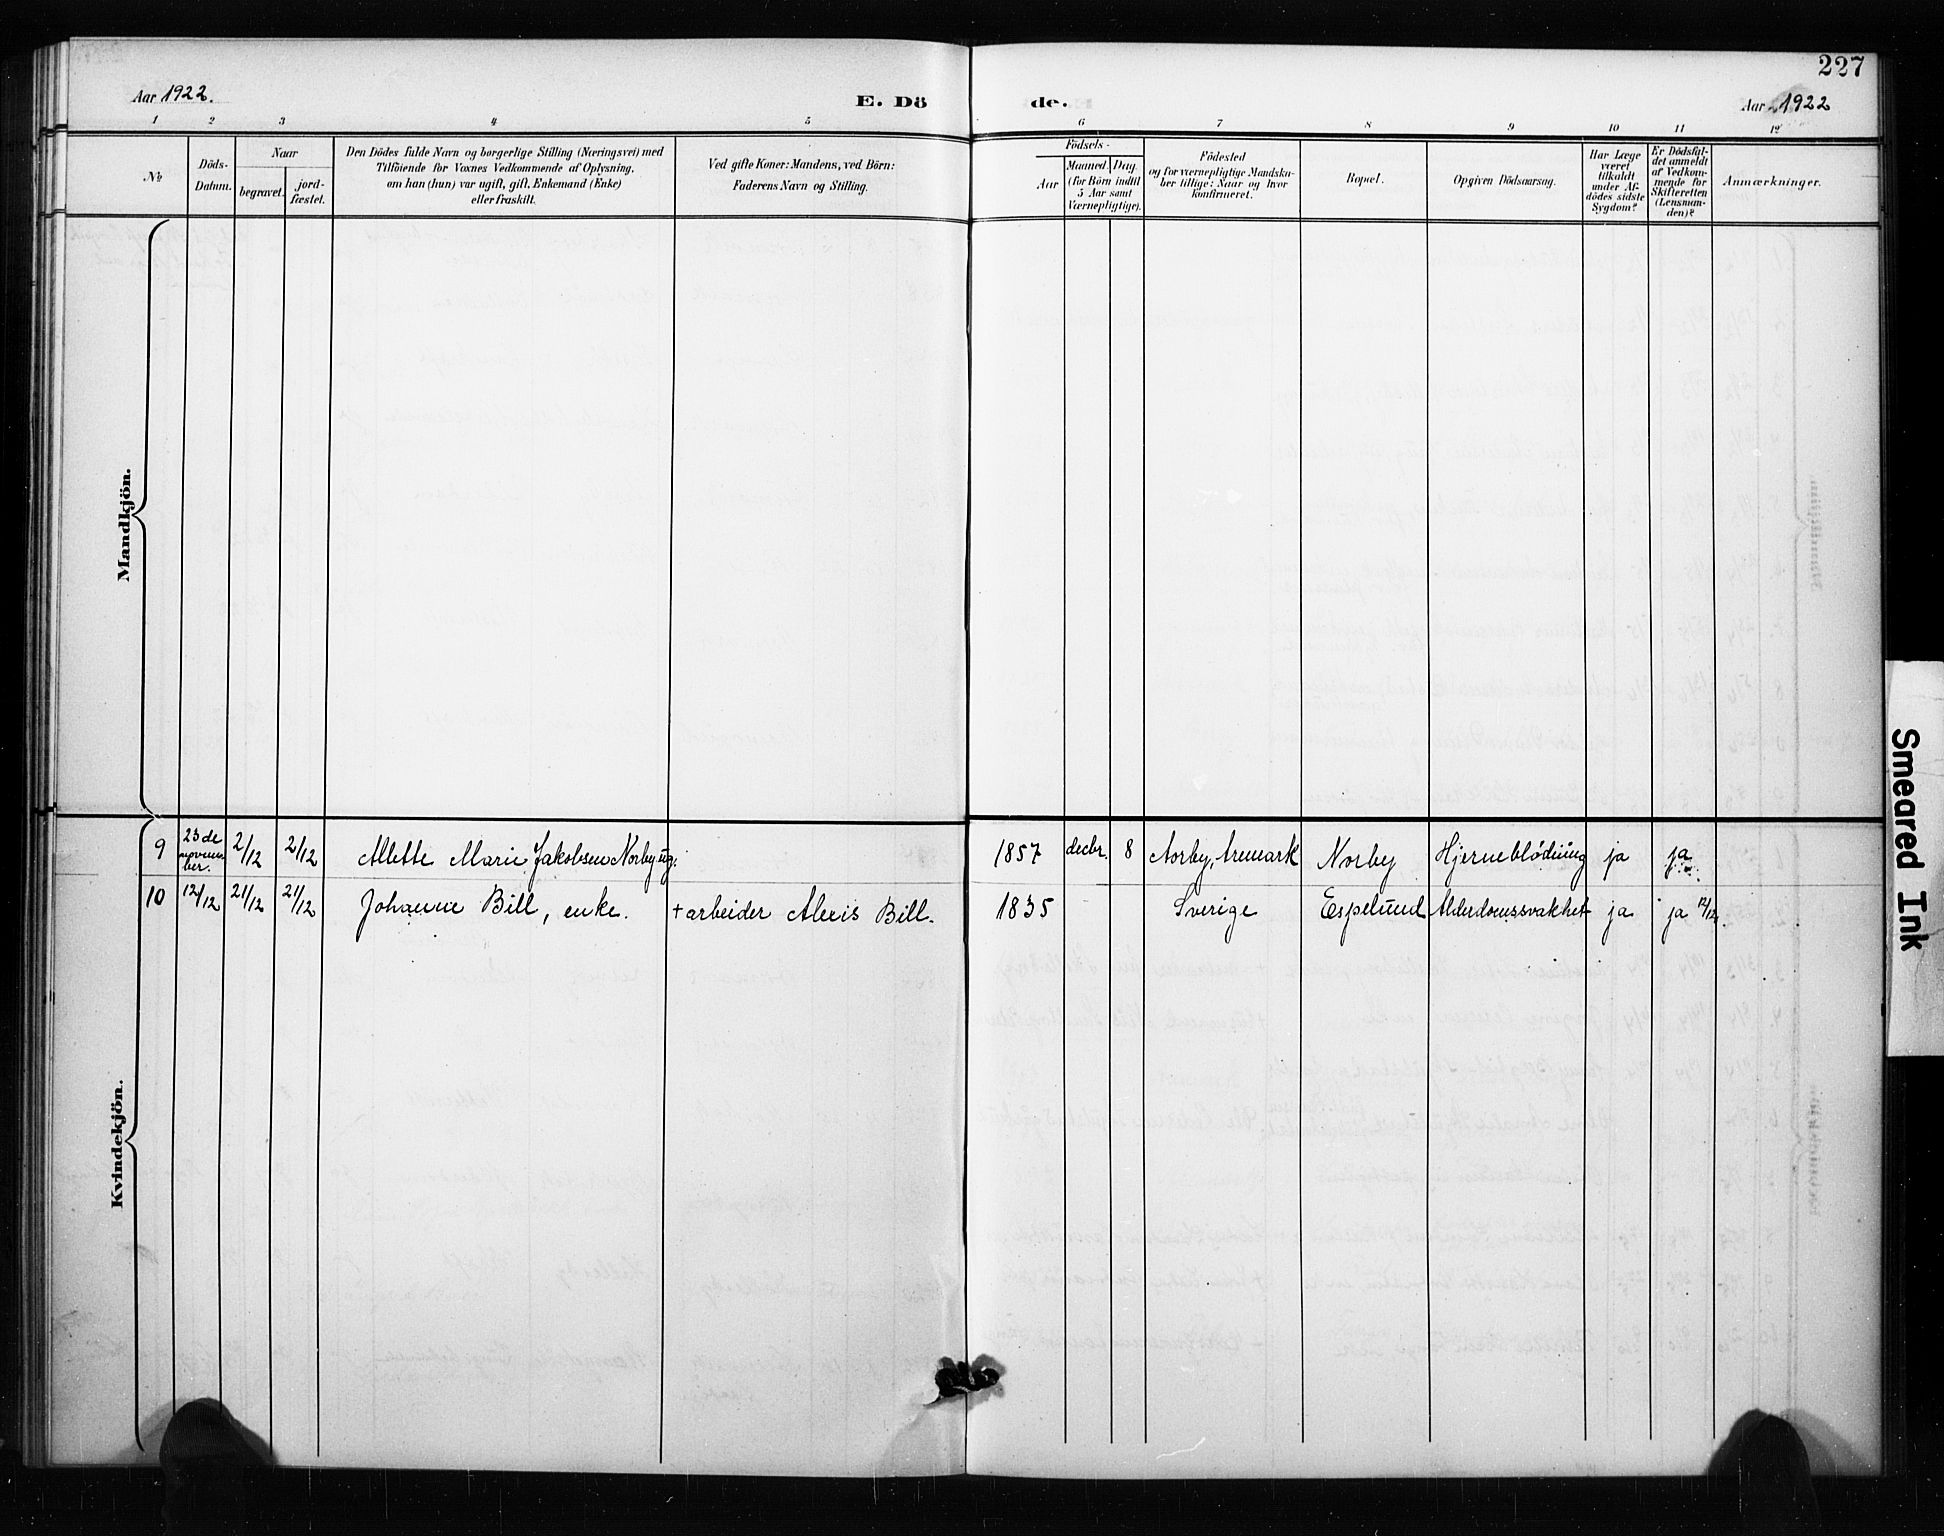 227
Aar 1922.
E. Dö
de.
Aar 1922
1 2 3 4 5 6 7 8 9 10 11 12
№
Döds-
Datum.
Naar
begravet.
jord-
fæstet.
Den Dödes fulde Navn og borgerlige Stilling (Næringsvei) med
Tilföiende for Voxnes Vedkommende af Oplysning,
om han (hun) var ugift, gift, Enkemand (Enke)
eller fraskilt.
Ved gifte Koner: Mandens, ved Börn:
Faderens Navn og Stilling.
Födsels-
Aar
Maaned.
Dag.
(for Börn indtil
5 Aar samt
Værnepligtige).
Födested
og for værnepligtige Mandska-
ber tillige: Naar og hvor
konfirmeret.
Bopæl.
Opgiven Dödsaarsag.
Har Læge
været
tilkaldt
under Af-
dödes sidste
Sygdom?
Er Dödsfal-
det anmeldt
af Vedkom-
mende for
Skifteretten
(Lensman-
den)?
Anmærkninger.
Mandkjön.
Kvindekjön.
9 23de november. 2/12 2/12 Alette Marie Jakobsen Norby ug. 1857 decbr. 8 Norby, Aremark Norby Hjerneblödning ja ja
10 12/12 21/12 21/12 Johanne Bill, enke. + arbeider Alexis Bill. 1835 Sverige Espelund Alderdomssvakhet ja ja 12/12.
Smeared Ink